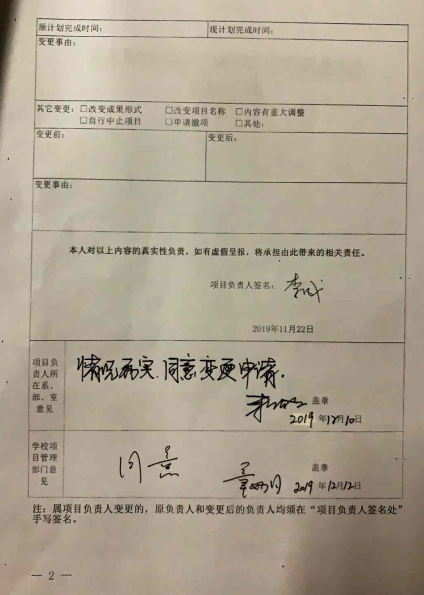 原计划完成时间： 现计划完成时间：
变更事由：
其它变更：□改变成果形式 □改变项目名称 □内容有重大调整
□自行中止项目 □申请撤项 □其他：
变更前： 变更后：
变更事由：
本人对以上内容的真实性负责，如有虚假呈报，将承担由此带来的相关责任。
项目负责人签名：
2019年11月22日
项目负
责人所
在系、
部、室
意见
情况属实，同意变更申请。
盖章
2019 年12月10日
学校项
目管理
部门意
见
同意
盖章
2019 年12月12日
注：属项目负责人变更的，原负责人和变更后的负责人均须在“项目负责人签名处”
手写签名。
— 2 —